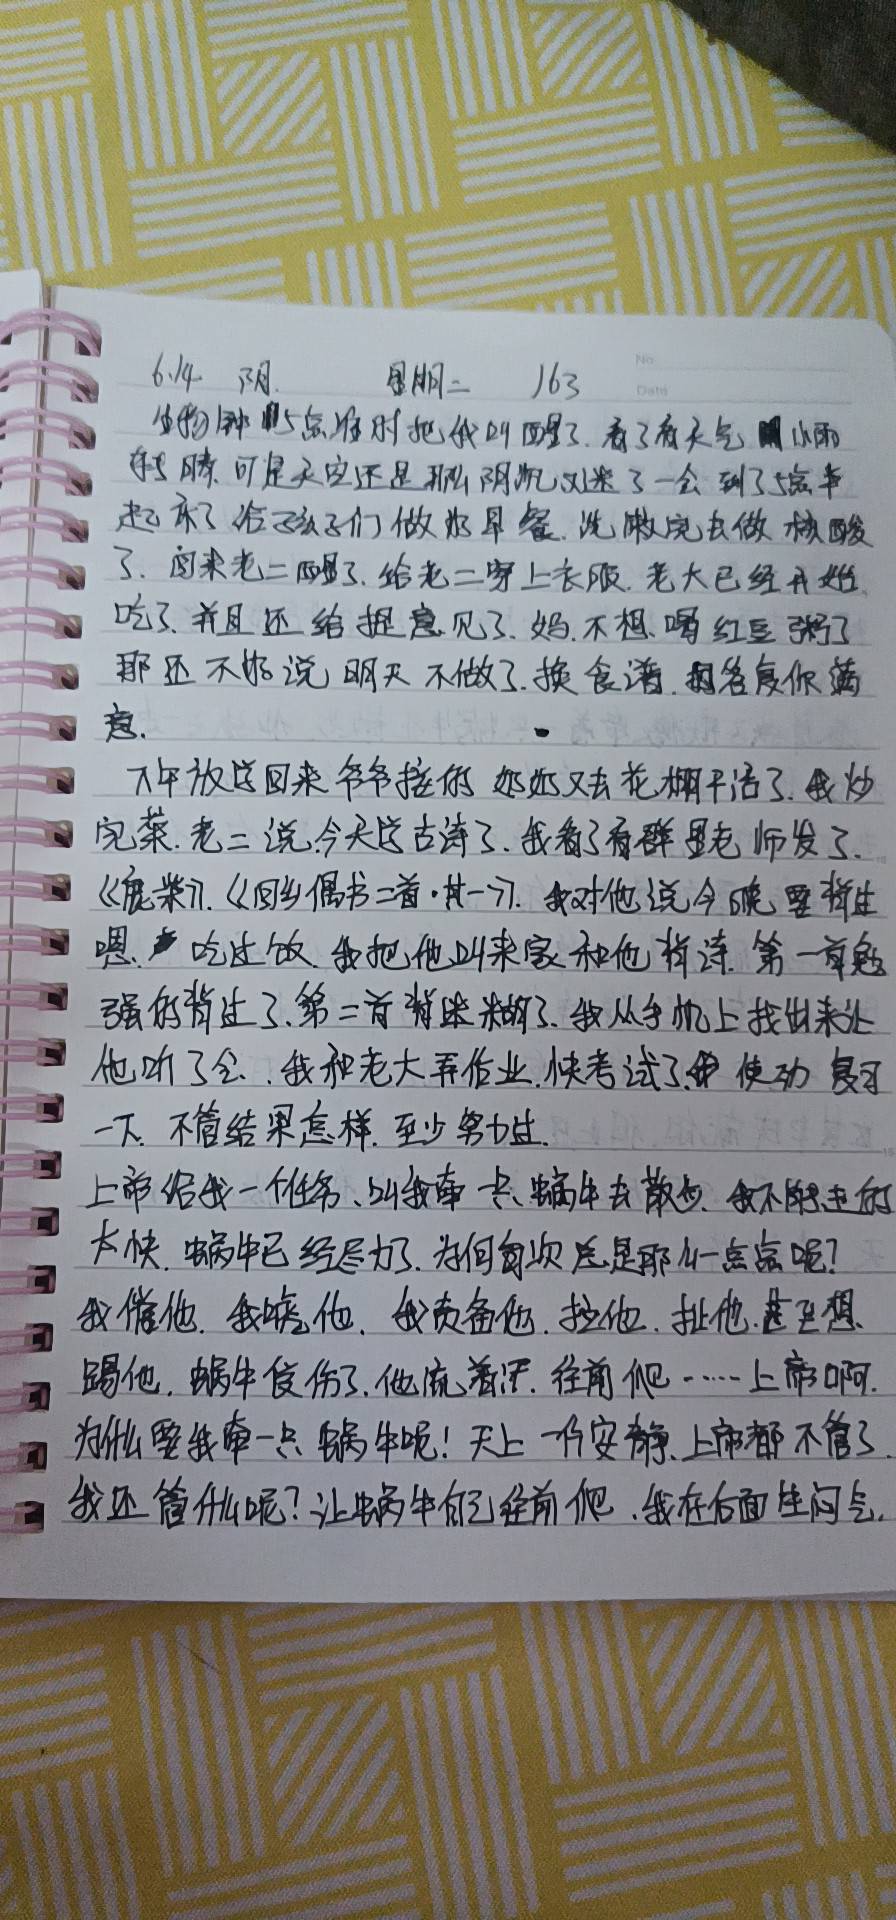 No.
Date
6.14 阴. 星期二 163
生物钟5点准时把我叫醒了.看了看天气 小雨
转晴.可是天空还是那么阴沉又迷了一会到了5点半
起床了给孩子们做好早餐.洗漱完去做核酸
了.回来老二醒了.给老二穿上衣服.老大已经开始
吃了.并且还给提意见了.妈.不想.喝红豆粥了
那还不好说明天不做了.换食谱. 答复你满
意.
下午放学回来爷爷接的 奶奶又去花棚干活了.我炒
完菜.老二说.今天学古诗了.我看了看群里老师发了.
《鹿柴》.《回乡偶书二首·其一》.我对他说今晚要背过
嗯. 吃过饭.我把他叫来家和他背诗.第一首勉
强的背过了.第二首背迷糊了.我从手机上找出来让
他听了会.我和老大弄作业.快考试了. 使劲复习
一下.不管结果怎样.至少努力过.
上帝给我一个任务、叫我牵一只蜗牛去散步.我不能走的
太快.蜗牛已经尽力了.为何每次总是那么一点点呢?
我催他.我唬他.我责备他.拉他.扯他.甚至想.
踢他.蜗牛受伤了.他流着汗.往前爬……上帝啊.
为什么要我牵一只蜗牛呢!天上一片安静.上帝都不管了.
我还管什么呢?让蜗牛自己往前爬.我在后面生闷气.